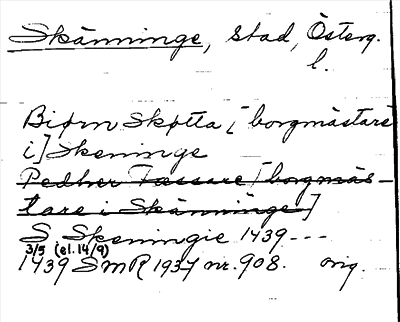 Skänninge, stad, Österg.
l.
Biørn Skøtta [borgmästare
i] Skeninge
Pedher Tassare [borgmäs-
tare i Skänninge]
S Skeningie 1439 ---
3/5 (el. 14/9)
1439 SmR 1937 nr. 908. orig.